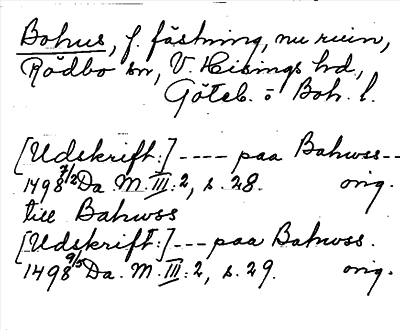 Bohus, f. fästning, nu ruin,
Rödbo sn, V. Hisings hd,
Göteb. o. Boh. l.
[Udskrift:] ---- paa Bahwss--
1498 7/2 Da. M. III: 2, s. 28. orig.
till Bahwss
[Udskrift:] --- paa Bahwss.
1498 9/5 Da. M. III: 2, s. 29. orig.